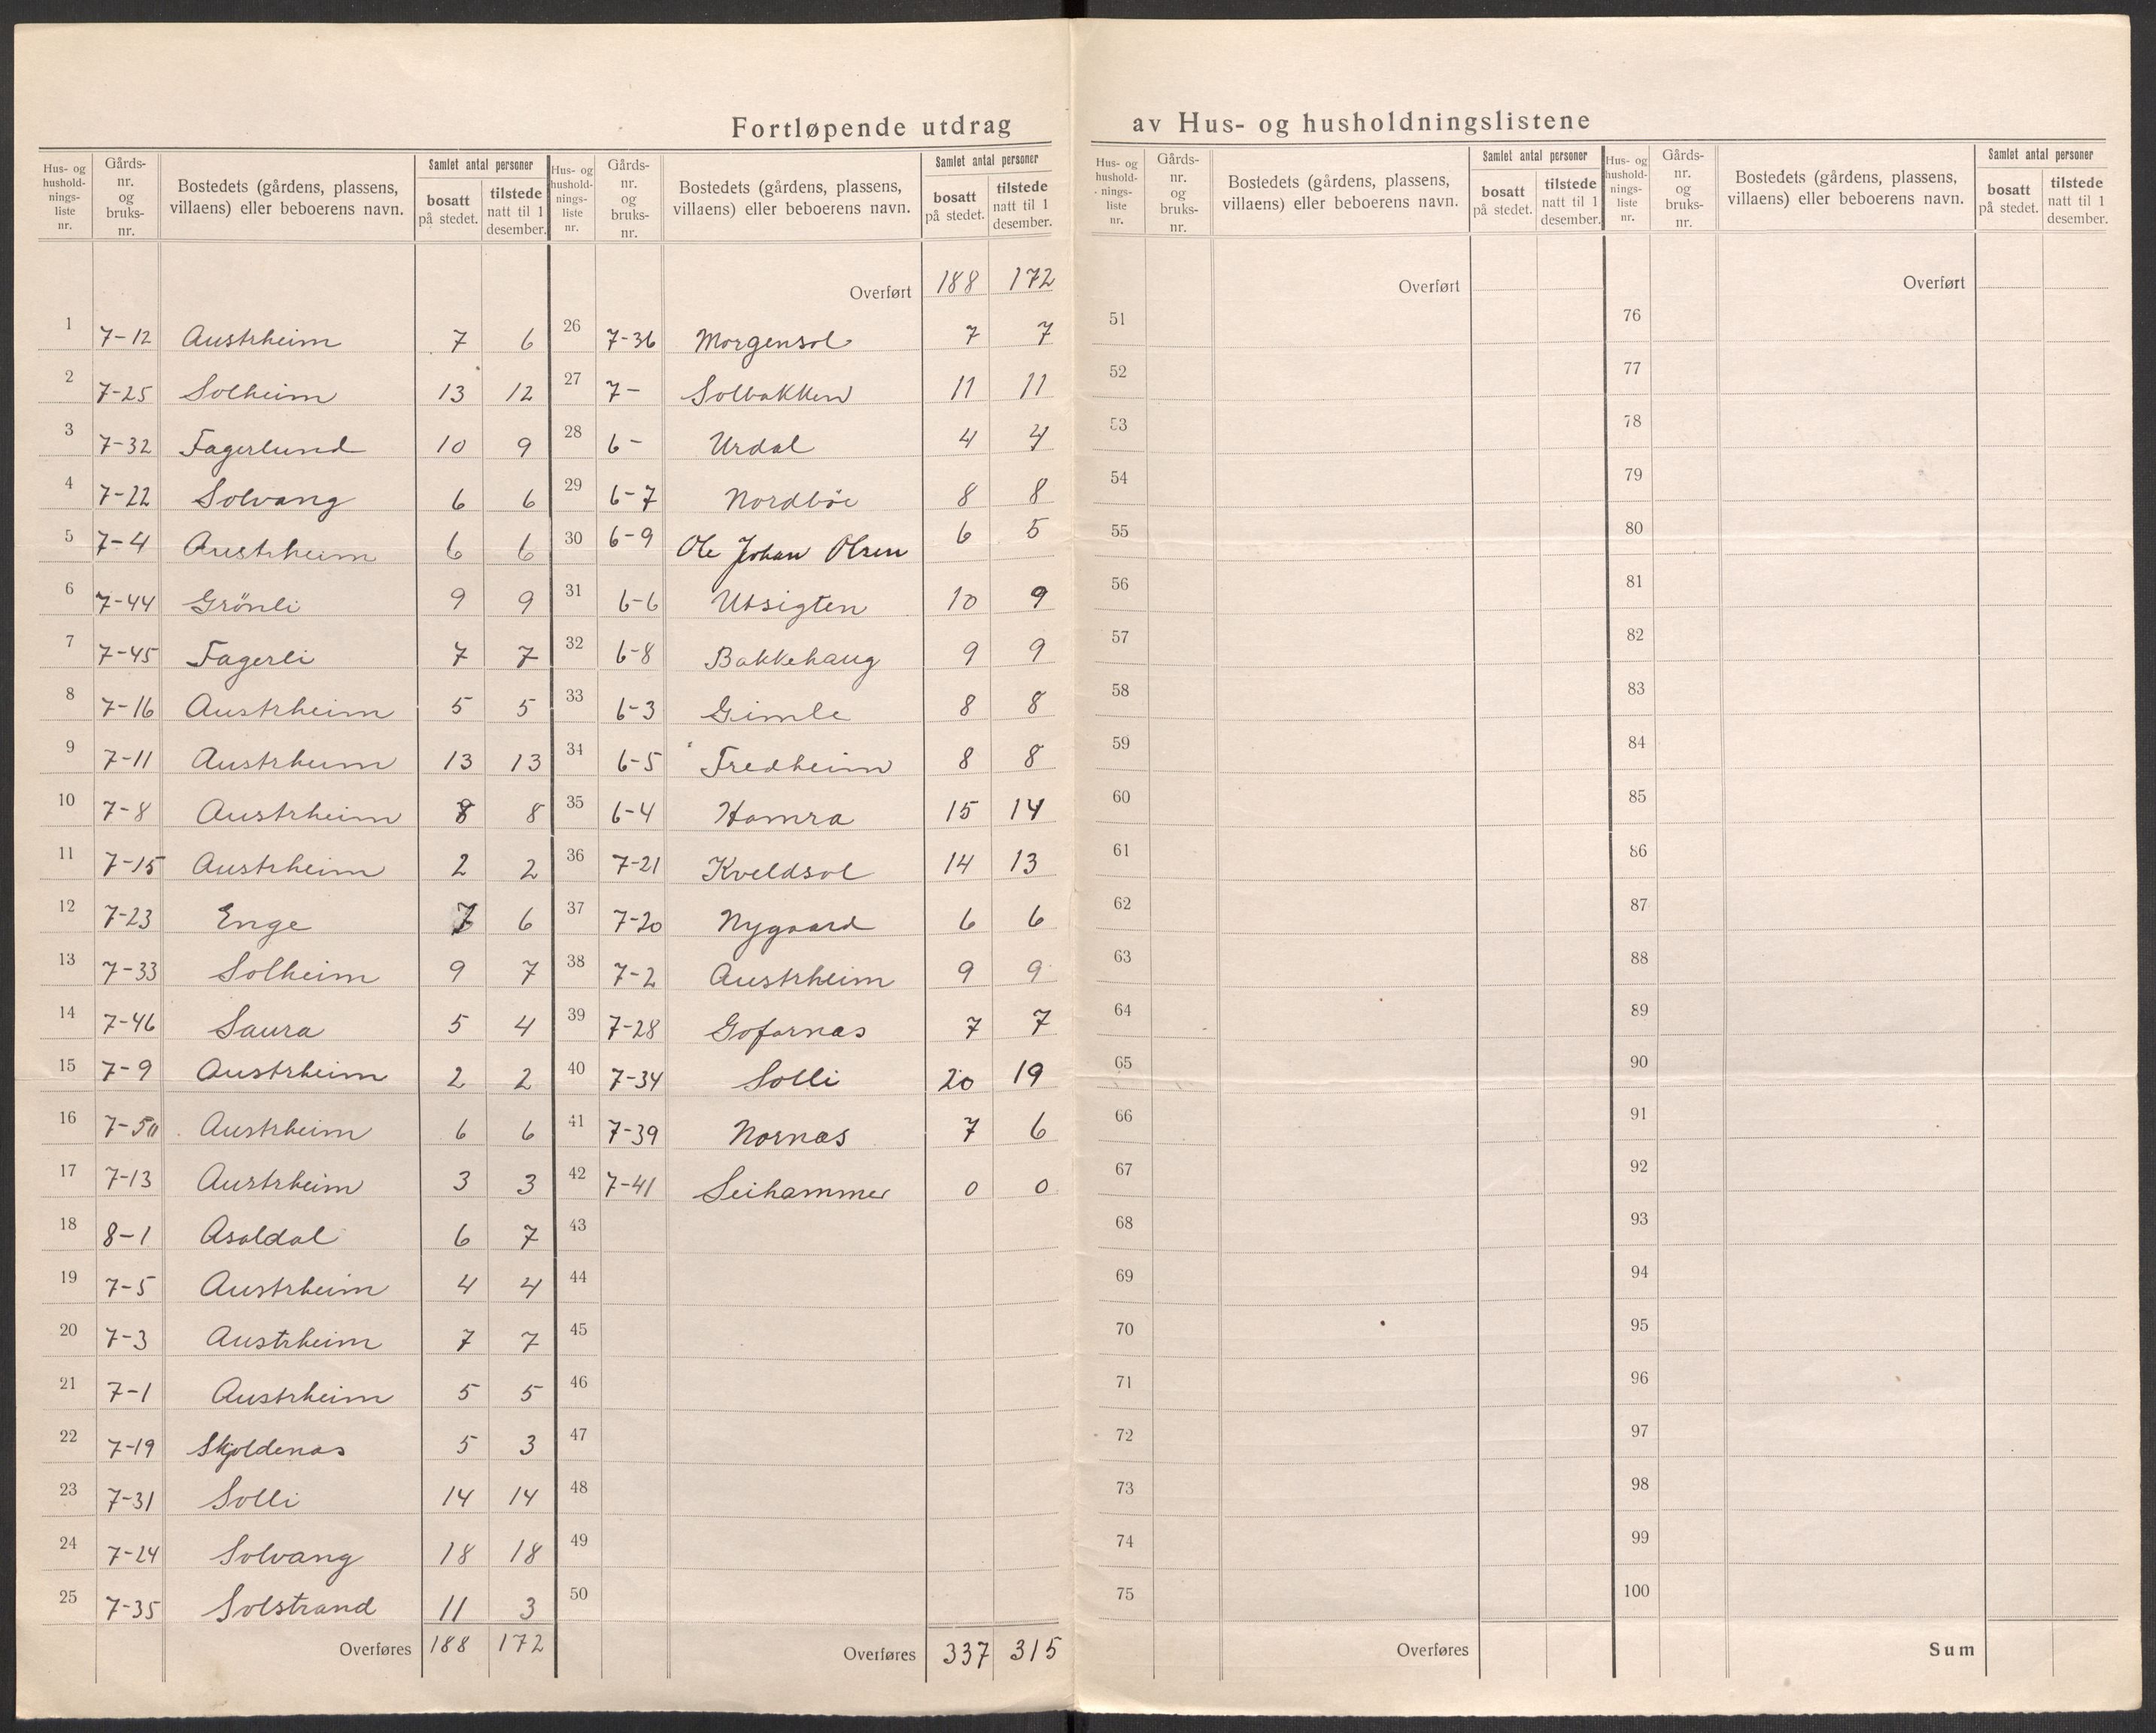 Fortløpende utdrag av Hus- og husholdningslistene
Hus- og hushold- nings- liste nr. | Gårds- nr. og bruks- nr. | Bostedets (gårdens, plassens, villaens) eller beboerens navn. | Samlet antal personer | bosatt på stedet. | tilstede natt til 1 desember.
1 7-12 Austrheim 7 6
2 7-25 Solheim 13 12
3 7-32 Fagerlund 10 9
4 7-22 Solvang 6 6
5 7-4 Austrheim 6 6
6 7-44 Grönli 9 9
7 7-45 Fagerli 7 7
8 7-16 Austrheim 5 5
9 7-11 Austrheim 13 13
10 7-8 Austrheim 8 8
11 7-15 Austrheim 2 2
12 7-23 Enge 7 6
13 7-33 Solheim 9 7
14 7-46 Saura 5 4
15 7-9 Austrheim 2 2
16 7-50 Austrheim 6 6
17 7-13 Austrheim 3 3
18 8-1 Asaldal 6 7
19 7-5 Austrheim 4 4
20 7-3 Austrheim 7 7
21 7-1 Austrheim 5 5
22 7-19 Skjoldenas 5 3
23 7-31 Solli 14 14
24 7-24 Solvang 18 18
25 7-35 Solstrand 11 3
Overføres 188 172
Hus- og hushold- nings- liste nr. | Gårds- nr. og bruks- nr. | Bostedets (gårdens, plassens, villaens) eller beboerens navn. | Samlet antal personer | bosatt på stedet. | tilstede natt til 1 desember.
Overført 188 172
26 7-36 Morgensol 7 7
27 7- Solbakken 11 11
28 6- Urdal 4 4
29 6-7 Nordböe 8 8
30 6-9 Ole Johan Olsen 6 5
31 6-6 Utsigten 10 9
32 6-8 Bakkehaug 9 9
33 6-3 Gimle 8 8
34 6-5 Fredheim 8 8
35 6-4 Hamra 15 14
36 7-21 Kveldsol 14 13
37 7-20 Nygaard 6 6
38 7-2 Austrheim 9 9
39 7-28 Gofarnas 7 7
40 7-34 Solli 20 19
41 7-39 Nornas 7 6
42 7-41 Seihammer 0 0
43
44
45
46
47
48
49
50
Overføres 337 315
Hus- og hushold- nings- liste nr. | Gårds- nr. og bruks- nr. | Bostedets (gårdens, plassens, villaens) eller beboerens navn. | Samlet antal personer | bosatt på stedet. | tilstede natt til 1 desember.
Overført
51
52
53
54
55
56
57
58
59
60
61
62
63
64
65
66
67
68
69
70
71
72
73
74
75
Overføres
Hus- og hushold- nings- liste nr. | Gårds- nr. og bruks- nr. | Bostedets (gårdens, plassens, villaens) eller beboerens navn. | Samlet antal personer | bosatt på stedet. | tilstede natt til 1 desember.
Overført
76
77
78
79
80
81
82
83
84
85
86
87
88
89
90
91
92
93
94
95
96
97
98
99
100
Sum